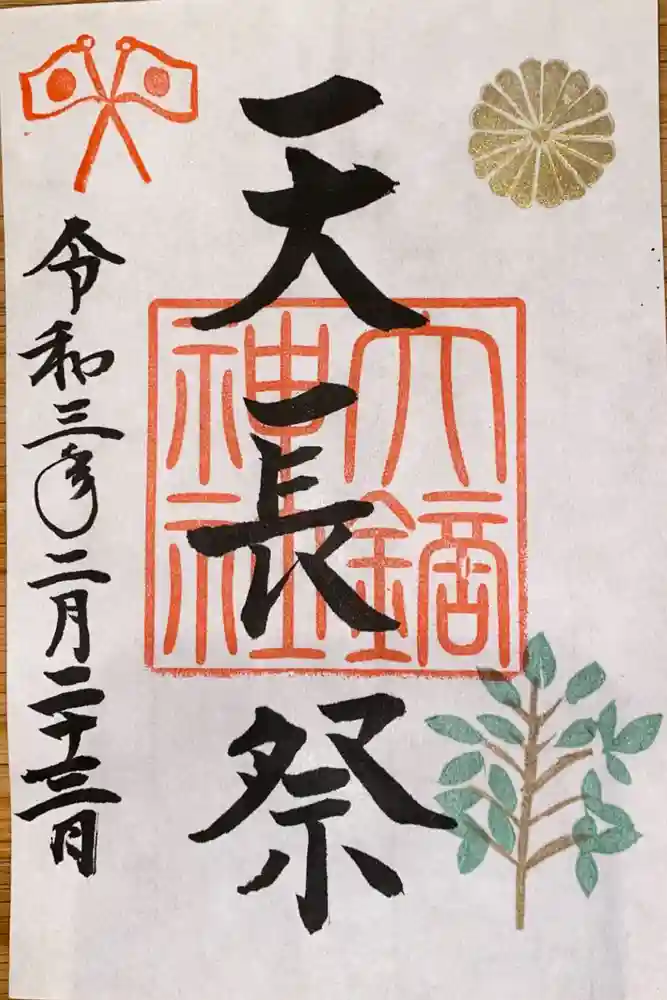 天長祭
大鏑
神社
令和三年二月二十三日